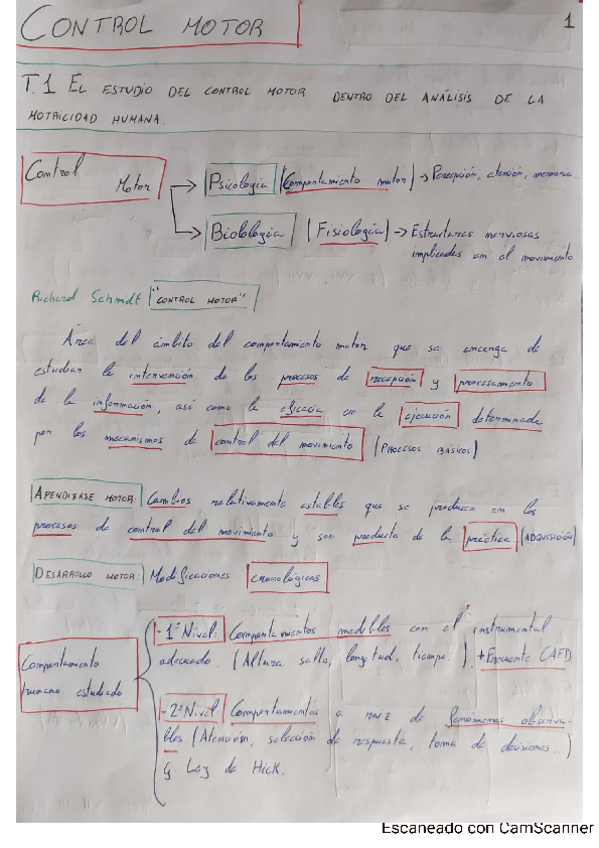 CONTROL MOTOR
1
T.1 EL ESTUDIO DEL CONTROL MOTOR DENTRO DEL ANÁLISIS DE LA
MOTRICIDAD HUMANA.
Control Motor
Psicología (Comportamiento motor) → Percepción, atención, memoria...
Biolología (Fisiología) → Estructuras nerviosas
implicadas en el movimiento
Richard Schmidt "CONTROL MOTOR"
Área del ámbito del comportamiento motor que se encarga de
estudiar la intervención de los procesos de recepción y procesamiento
de la información, así como la eficacia en la ejecución determinada
por los mecanismos de control del movimiento (PROCESOS BÁSICOS)
APENDIBASE MOTOR: Cambios relativamente estables que se producen en los
procesos de control del movimiento y son producto de la práctica (ADQUISICIÓN)
DESARROLLO MOTOR: Modificaciones cronológicas
Comportamiento
humano estudiado
- 1º Nivel: Comportamientos medibles con el instrumental
adecuado. (Altura salto, longitud, tiempo...) + Frecuente CAFD
- 2º Nivel Comportamientos a raíz de fenómenos observa-
bles. (Atención, selección de respuesta, toma de decisiones...)
Ley de Hick.
Escaneado con CamScanner